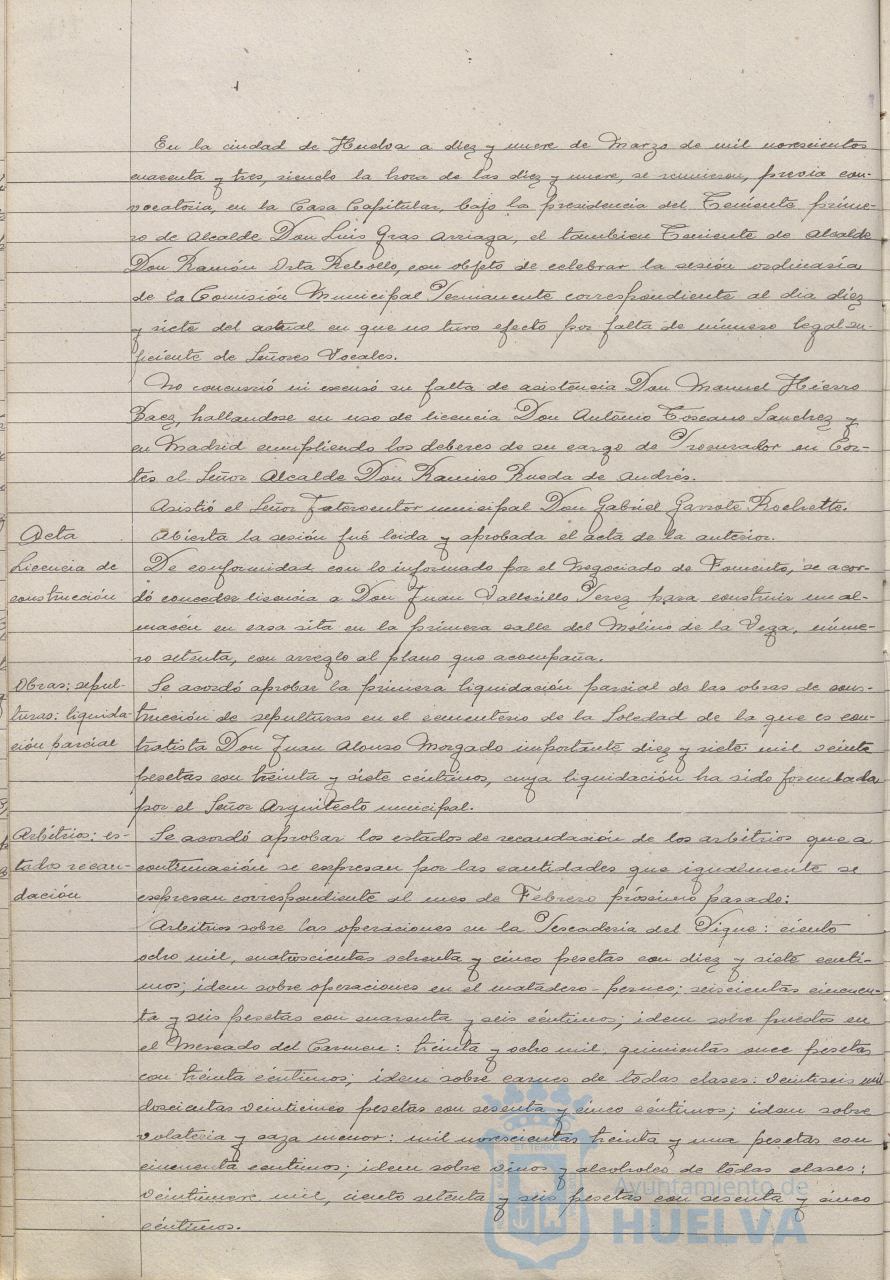 En la ciudad de Huelva a diez y nueve de Marzo de mil novescientos
cuarenta y tres, siendo la hora de las diez y nueve, se reunieron, previa con-
vocatoria, en la Casa Capitular, bajo la presidencia del Teniente prime-
ro de Alcalde Don Luis Gras Arriaga, el tambien Teniente de Alcalde
Don Ramón Orta Rebollo, con objeto de celebrar la sesión ordinaria
de la Comisión Municipal Permanente correspondiente al dia diez
y siete del actual en que no tuvo efecto por falta de número legal su-
ficiente de Señores Vocales.
No concurrió ni excusó su falta de asistencia Don Manuel Hierro
Baez, hallandose en uso de licencia Don António Toscano Sanchez y
en Madrid cumpliendo los deberes de su cargo de Procurador en Cor-
tes el Señor Alcalde Don Ramiro Rueda de Andrés.
Asistió el Señor Interventor municipal Don Gabriel Garrote Rochette.
Acta
Abierta la sesión fué leida y aprobada el acta de la anterior.
Licencia de
construcción
De conformidad con lo informado por el Negociado de Fomento, se acor-
dó conceder licencia a Don Juan Vallecillo Perez para construir un al-
macén en casa sita en la primera calle del Molino de la Vega, núme-
ro setenta, con arreglo al plano que acompaña.
Obras: sepul-
turas: liquida-
ción parcial
Se acordó aprobar la primera liquidación parcial de las obras de cons-
trucción de sepulturas en el cementerio de la Soledad de la que es con-
tratista Don Juan Alonso Morgado importante diez y siete mil veinte
pesetas con treinta y siete céntimos, cuya liquidación ha sido formulada
por el Señor Arquitecto municipal.
Arbitrios: es-
tados recau-
dación
Se acordó aprobar los estados de recaudación de los arbitrios que a
continuación se expresan por las cantidades que igualmente se
expresan correspondiente al mes de Febrero próximo pasado:
Arbitrios sobre las operaciones en la Pescaderia del Dique: ciento
ocho mil, cuatroscientas ochenta y cinco pesetas con diez y siete cénti-
mos; idem sobre operaciones en el matadero-perneo; seiscientas cincuen-
ta y seis pesetas con cuarenta y seis céntimos; idem sobre puestos en
el Mercado del Carmen: treinta y ocho mil, quinientas once pesetas
con treinta céntimos; idem sobre carnes de todas clases: veintiseis mil
doscientas veinticinco pesetas con sesenta y cinco céntimos; idem sobre
volateria y caza menor: mil novescientas treinta y una pesetas con
cincuenta centimos; idem sobre vinos y alcoholes de todas clases:
veintinueve mil, ciento setenta y seis pesetas con sesenta y cinco
céntimos.
Ayuntamiento de
HUELVA